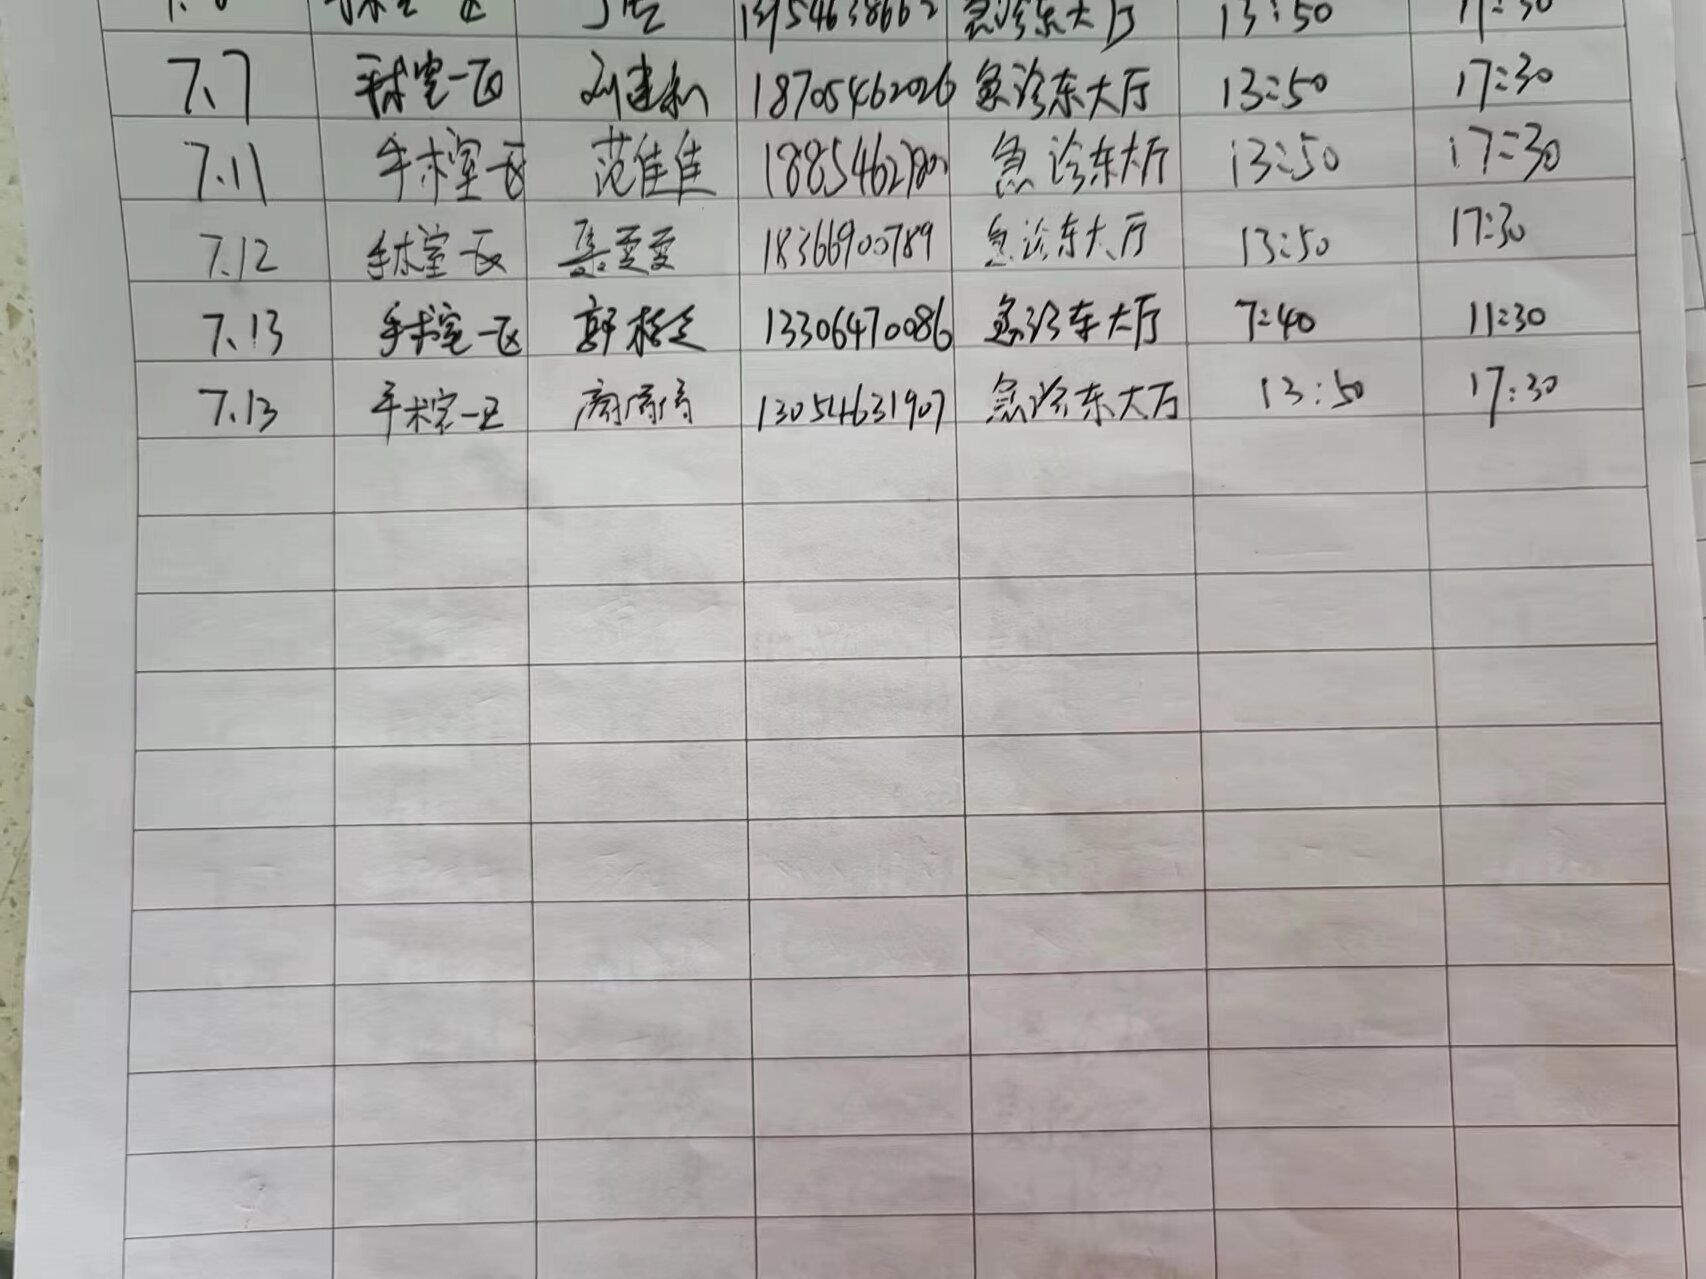 13:50
7.7 手术室一区 刘建和 18705462026 急诊东大厅 13:50 17:30
7.11 手术室一区 范佳佳 急诊东大厅 13:50 17:30
7.12 手术室一区 18366900789 急诊东大厅 13:50 17:30
7.13 手术室一区 郭 13306470086 急诊东大厅 7:40 11:30
7.13 手术室一区 13054631907 急诊东大厅 13:50 17:30